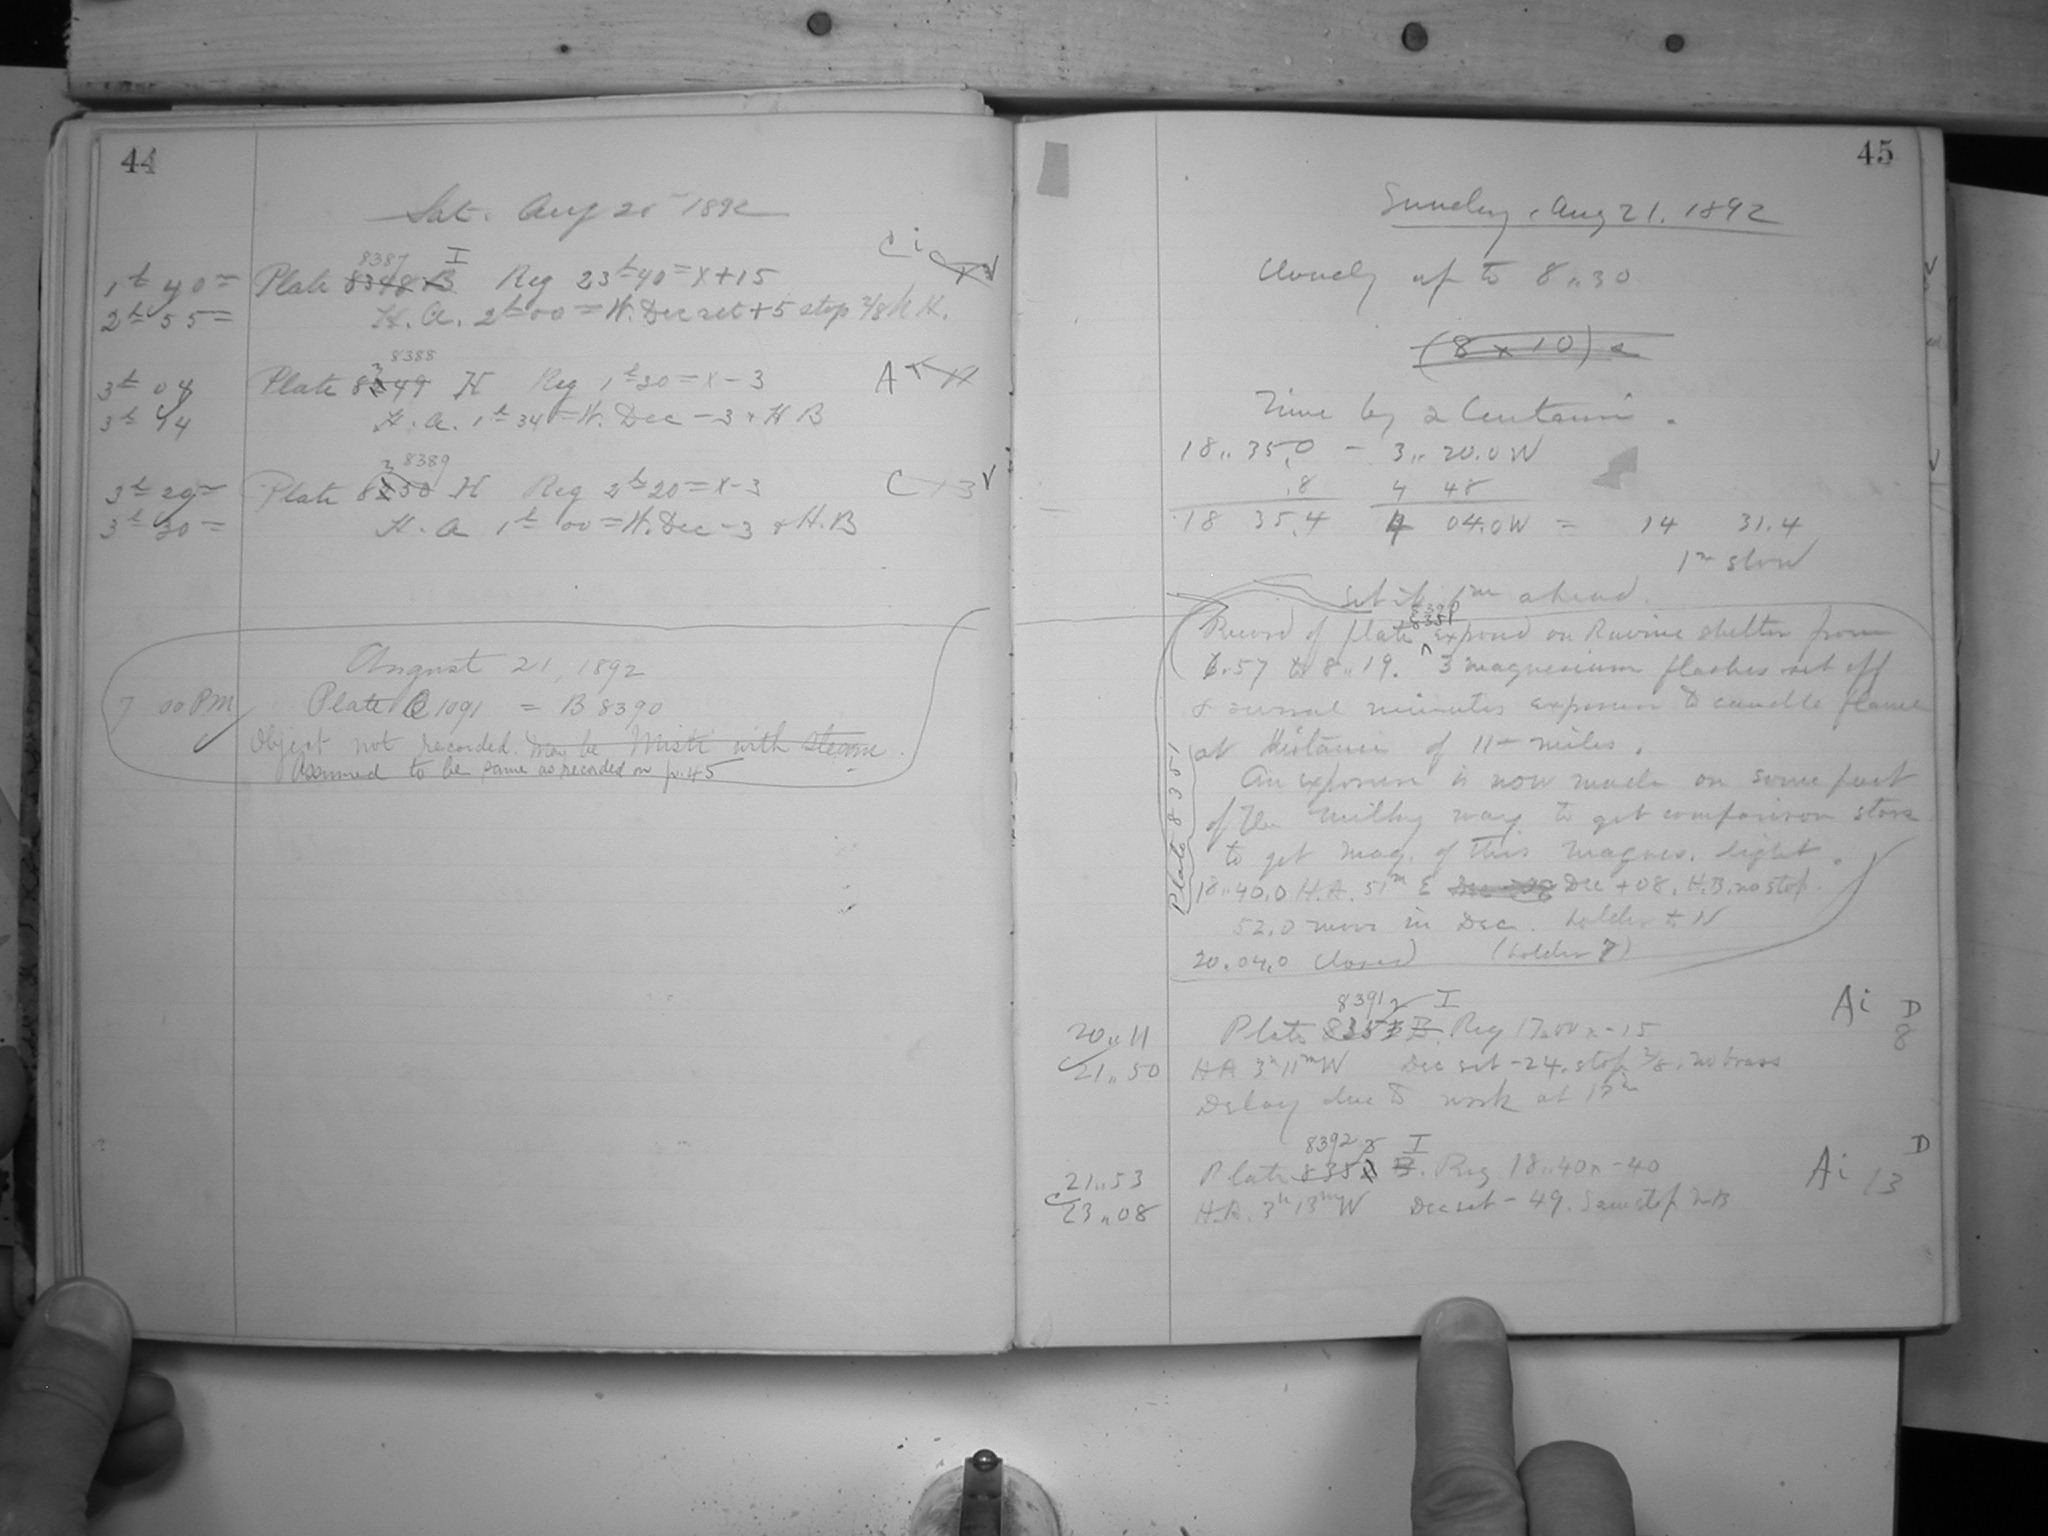 44
Sat. Aug 20 1892
8387 I
1h 40m Plate 8348 B Reg 23h 40m x + 15 Ci
2h 55m H.A. 2h 00m W. Dec set + 5 stop 2/8 N H.
8388
3h 04 Plate 8349 H Reg 1h 20m x - 3 A
3h 14 H.A. 1h 34m W. Dec - 3 H B
8389
3h 20m Plate 8350 H Reg 2h 20m x - 3 C 13 V
3h 30m H.A 1h 00m W. Dec - 3 & H.B
August 21, 1892
7 00 PM Plate C 1091 = B 8390
Object not recorded. May be Misti with steam.
Assumed to be same as recorded on p. 45
45
Sunday, Aug 21, 1892
Cloudy up to 8.. 30
(8 x 10)
Time by α Centauri.
18.. 35.0 - 3.. 20.0 W
.8 4 48
18 35.4 4 04.0 W = 14 31.4
1m slow
Set it 1m ahead.
8390
8351
Record of plate exposed on Ravine shelter from
6.57 to 8.. 19. 3 magnesium flashes set off
& several minutes exposure to candle flame
at distance of 11 miles.
An exposure is now made on some part
of the milky way to get comparison stars
to get mag. of this magnes. light.
Plate 8351
18.. 40.0 H.A. 51m E Dec +08. H.B. no stop.
52.0 move in Dec. holder to N
20.04.0 Closed (holder 7)
8391 I Ai D
20.. 11 Plate 835 B. Reg 17.00 x - 15 8
21.. 50 HA 3h 11m W Dec set - 24. stop 2/8. no brass
Delay due to work at 12in
8392 I D
21.. 53 Plate 835 B. Reg 18.. 40 x - 40 Ai 13
23.. 08 H.A. 3h 13m W Dec set - 49. Same stop N B